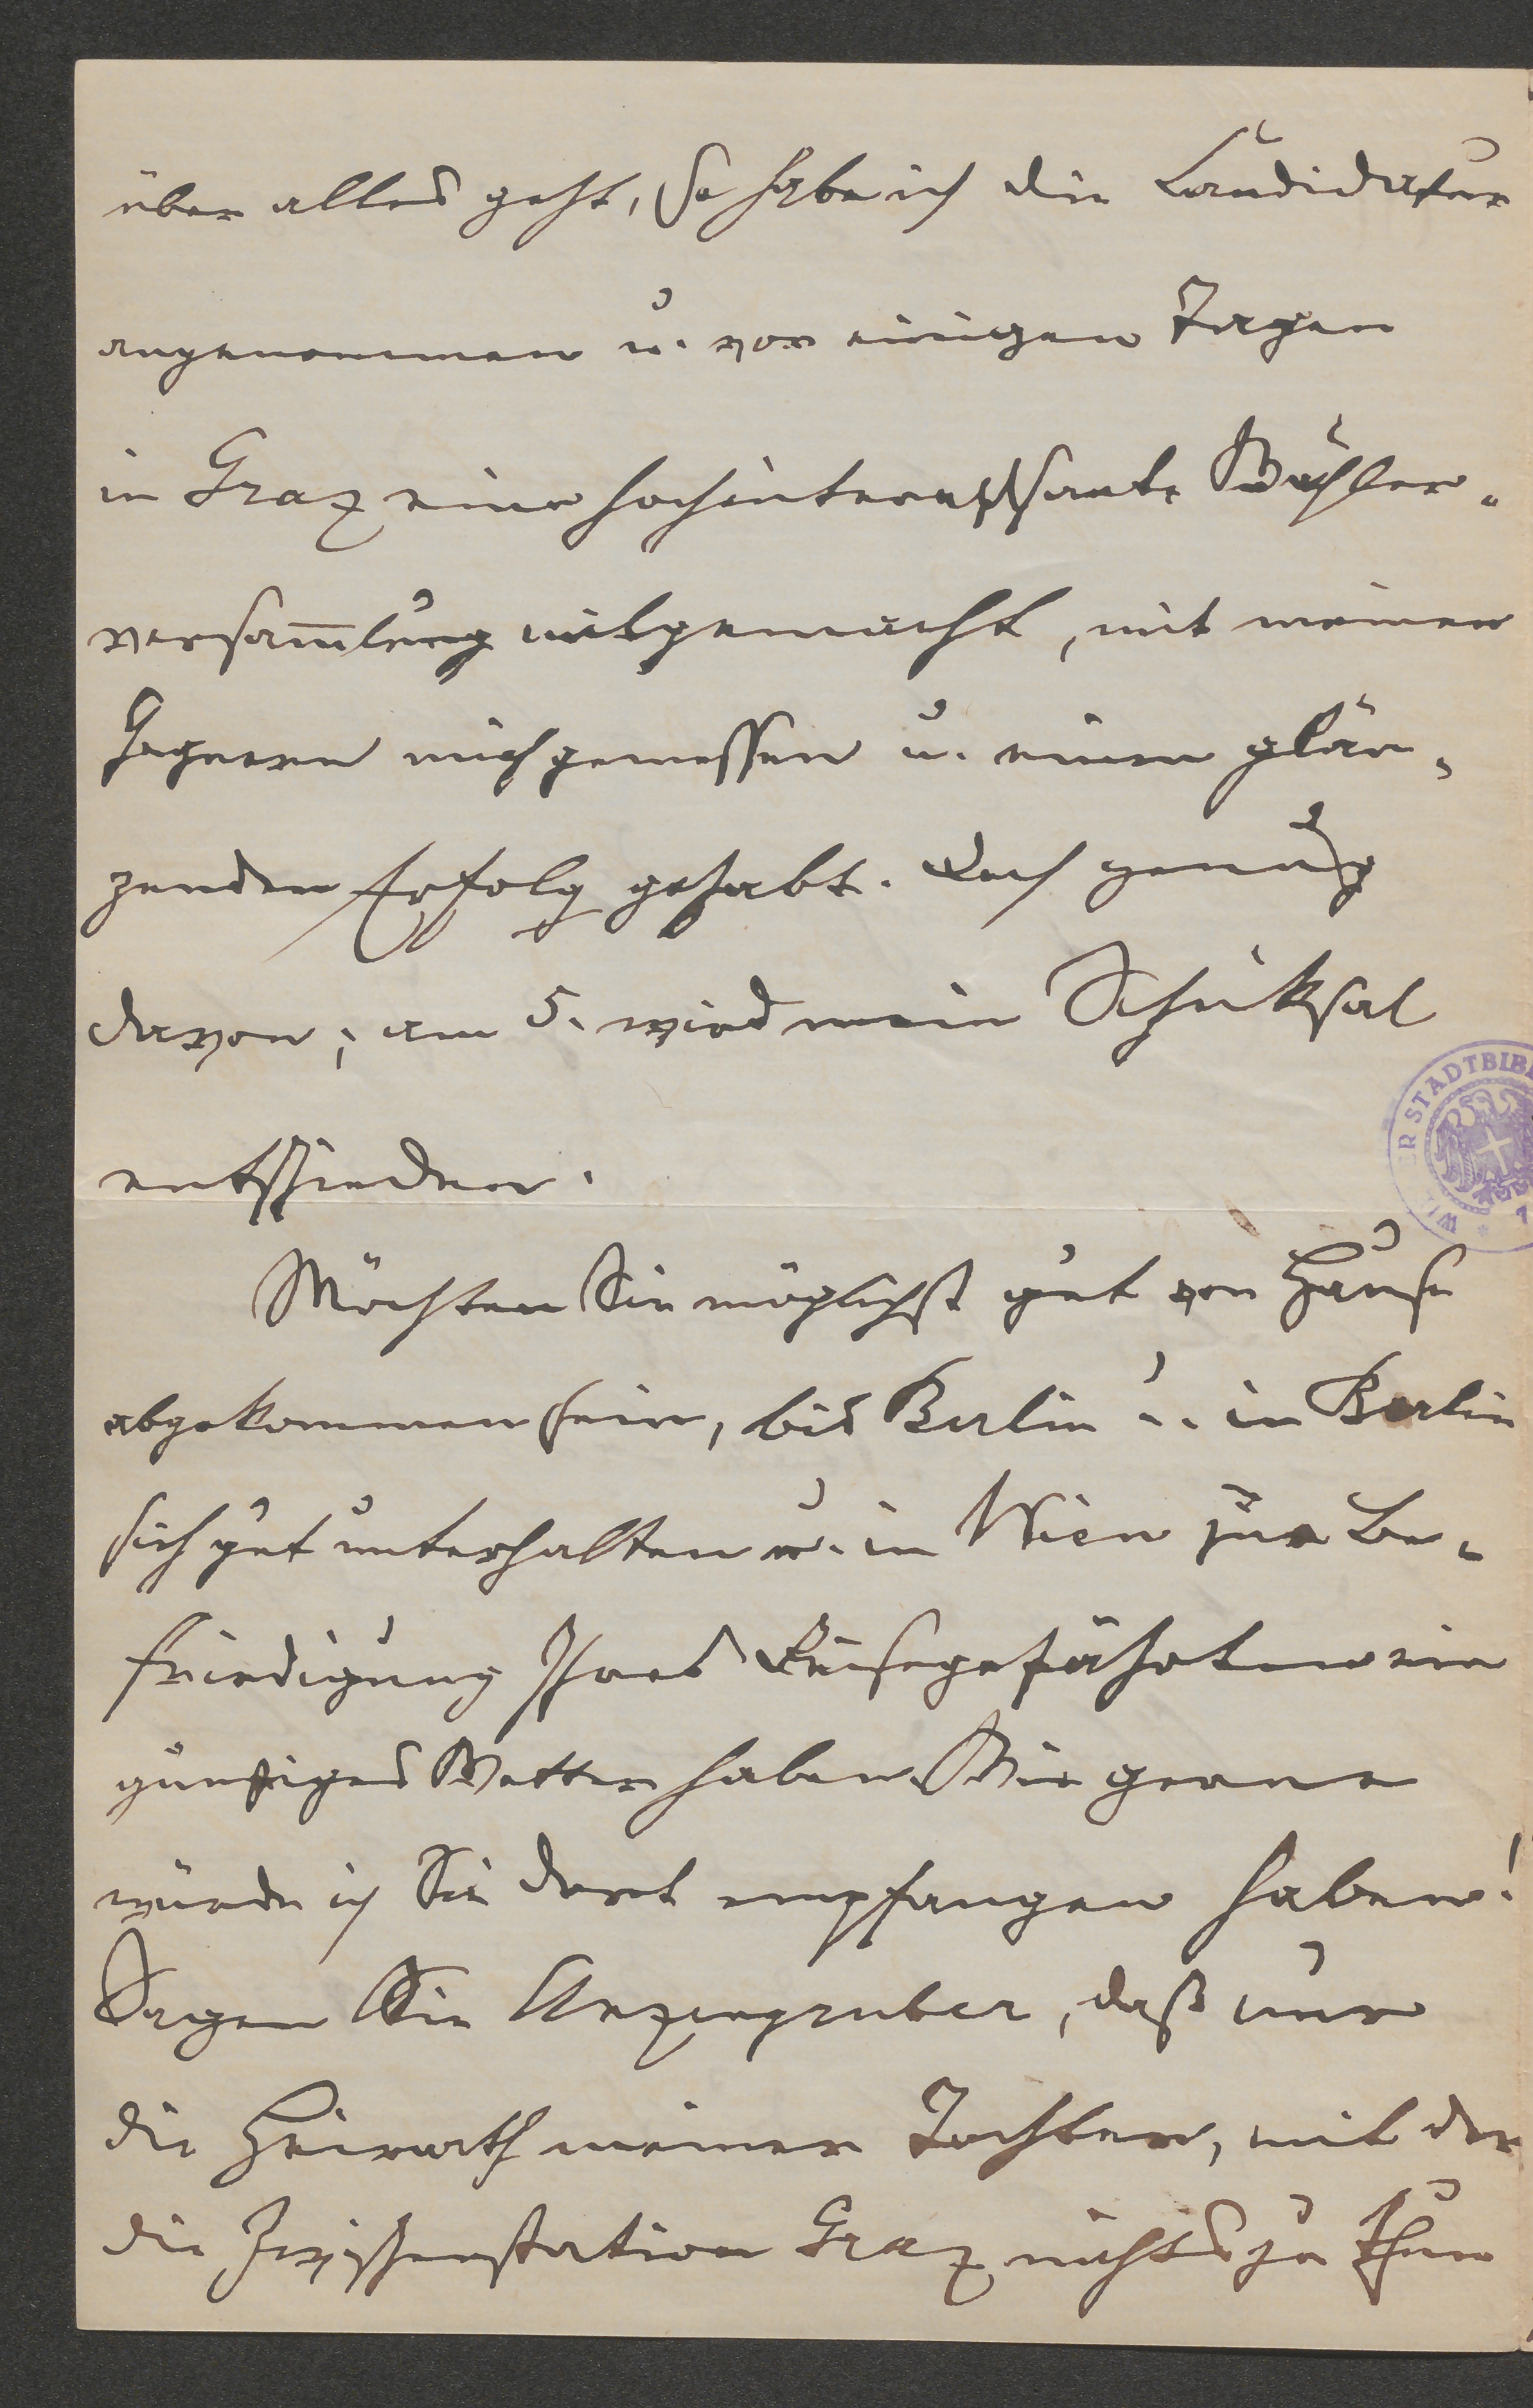 über alles geht, so habe ich die Candidatur
angenommen u. vor einigen Tagen
in Graz eine hochinteressante Wähler-
versam̅lung mitgemacht, mit meinen
Gegnern mich gemessen u. einen glän-
zenden Erfolg gehabt. Doch genug
davon; am 5. wird mein Schiksal
entschieden.
Möchten Sie möglichst gut von Hause
abgekommen sein, bis Berlin u. in Berlin
sich gut unterhalten u. in Wien zur Be-
friedigung Ihres Reisegefährten ein
günstiges Wetter haben. Wie gerne
würde ich Sie dort empfangen haben!
Sagen Sie Anzengruber, daß nur
die Heirath meiner Tochter, mit der
die Zwischenstation Graz nichts zu thun
WIENER STADTBIB